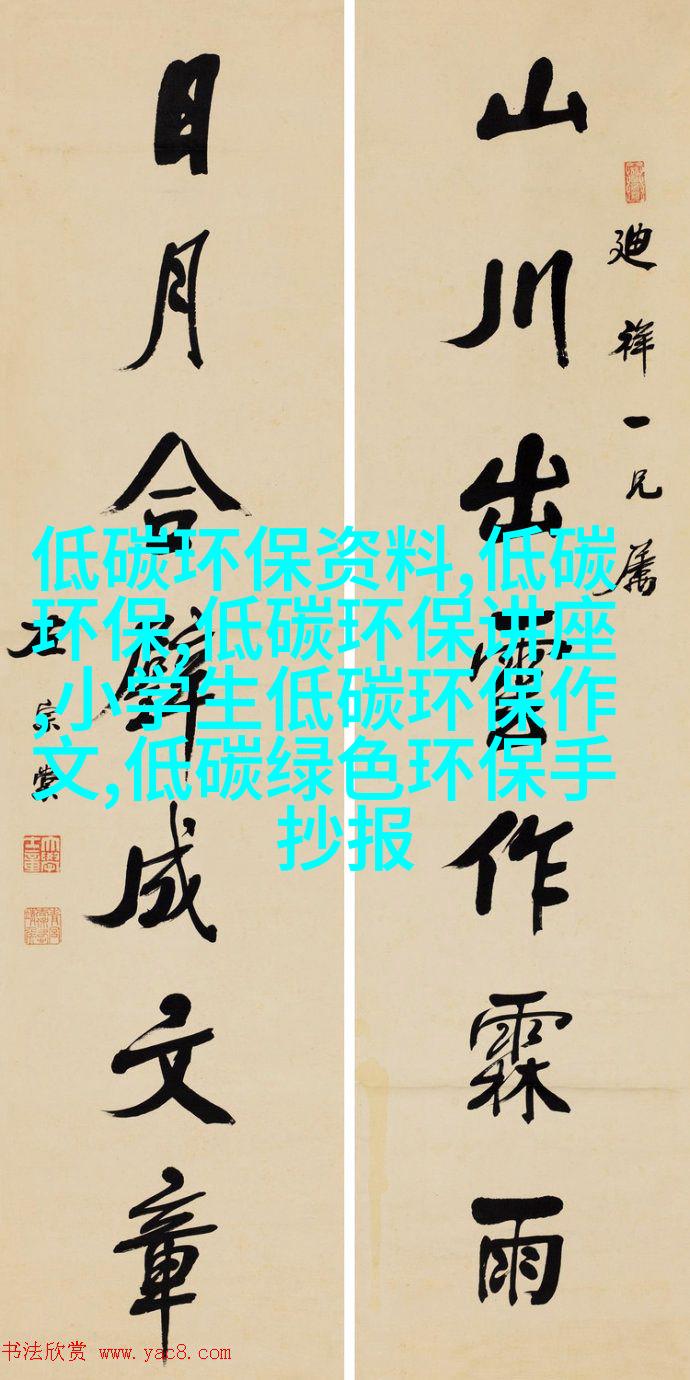 廸祥一兄属
山川出雲作霖雨
日月合璧成文章
王宗
低碳环保资料,低碳
环保,低碳环保讲座
,小学生低碳环保作
文,低碳绿色环保手
抄报
书法欣赏 www.yac8.com